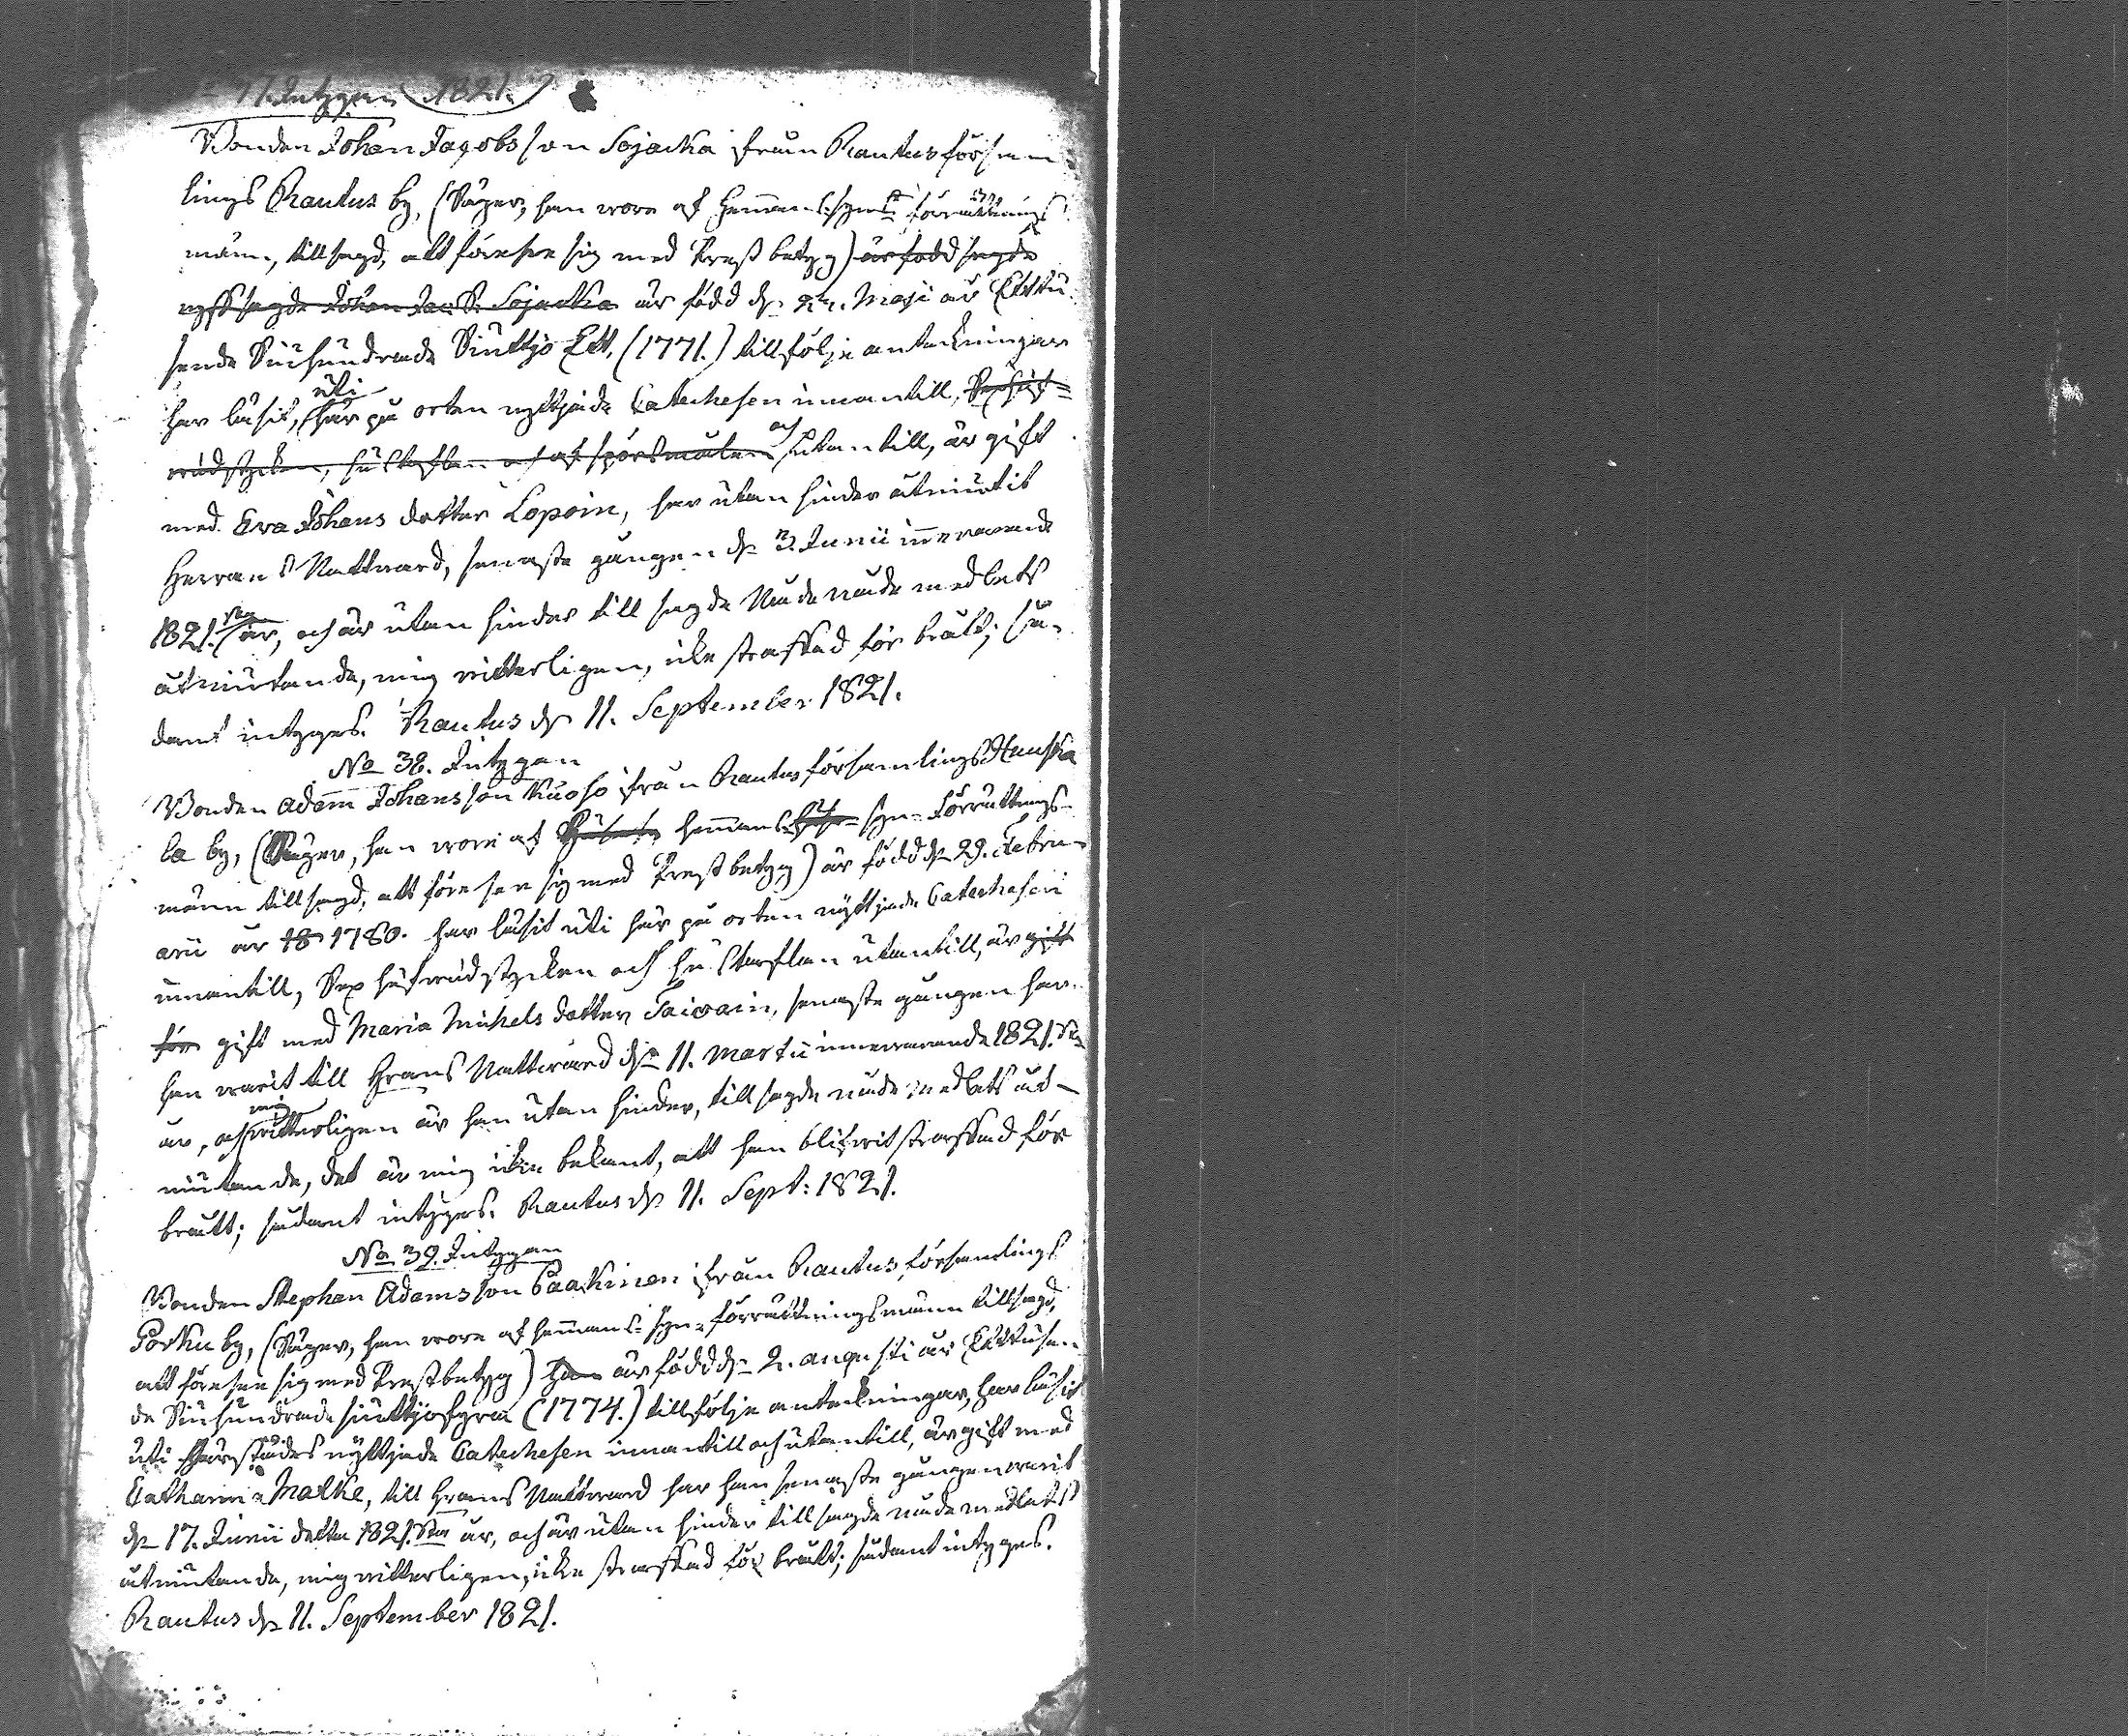 Intygan 1821.
Bonden Johan Jacobs son Sojacka ifrån Rautus församm
lings Rautus by, (Säger, han vore af Hemmans syns förrättnings
män, tillsagd, att förese sig med Prest betyg) är född sagde
nyss sagde Johan Jac S. Sojacka är född dn Maji år Ettu
sende Siuhundrade Siuttjo Ett, (1771.) tillfölje anteckningar
har läsit, uti här på orten nyttjade Catechesen innantill, Sex huf=
vudstycken, hustaflan och af spörsmålen och utantill, är gift
med Eva Johans dotter Lopoin, har utan hinder åtniutit
Herrans Nattvard, senaste gången dn 3. Junii innevarande
1821. sta år, och är utan hinder till sagde Nåde medlets
åtniutande, mig vitterligen, icke straffad för brått; så-
dant intyges. Rautus dn 11. September 1821.
No 38. Intygan
Bonden Adam Johans son Kuoso ifrån Rautus församlings Hauska
la by, (Säger, han vore af hemmans syn- Förrättnings-
män tillsagd, att förese sig med Prest betyg) är född dn 29. Febru-
arii år 18 1780. har läsit uti här på orten nyttjade Catechesen
innantill, Sex hufvudstycken och hustaflan utantill, är gift
för gift med Maria Michels dotter Taivain, senaste gången har
han varit till Hrans Nattvard dn 11. Martii innevarande 1821. sta
år, och mig vitterligen är han utan hinder, till sagde nåde medlets åt-
niutande, det är mig icke bekant, att han blifvit straffad för
brått; sådant intyges. Rautus dn 11. Sept: 1821.
No 39. Intygan
Bonden Stephan Adams son Paakinen ifrån Rautus församlings
Porku by, (Säger, han vore af hemmans- syn- förrättningsmän tillsagd,
att förese sig med Prestbetyg) han är född dn 2. Augusti år Ettusen-
de Siuhundrade siuttjofyra (1774.) tillfölje anteckningar, har läsit
uti härstädes nyttjade Catechesen innantill och utantill, är gift med
Catharina Malke, till Hrans Nattvard har han senaste gången varit
dn 17. Junii detta 1821. sta år, och är utan hinder till sagde nåde medlets
åtniutande, mig vitterligen, icke straffad för brått; sådant intyges.
Rautus dn 11. September 1821.